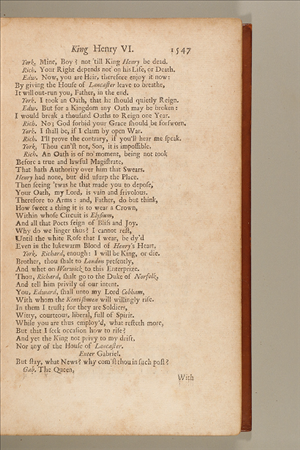 King Henry VI. 1547
York. Mine, Boy? not 'till King Henry be dead.
Rich. Your Right depends not on his Life, or Death.
Edw. Now, you are Heir, therefore enjoy it now:
By giving the House of Lancaster leave to breathe,
It will out-run you, Father, in the end.
York. I took an Oath, that he should quietly Reign.
Edw. But for a Kingdom any Oath may be broken:
I would break a thousand Oaths to Reign one Year.
Rich. No; God forbid your Grace should be forsworn.
York. I shall be, if I claim by open War.
Rich. I'll prove the contrary, if you'll hear me speak.
York, Thou can'st not, Son, it is impossible.
Rich. An Oath is of no moment, being not took
Before a true and lawful Magistrate,
That hath Authority over him that Swears.
Henry had none, but did usurp the Place.
Then seeing 'twas he that made you to depose,
Your Oath, my Lord, is vain and frivolous.
Therefore to Arms: and, Father, do but think,
How sweet a thing it is to wear a Crown,
Within whose Circuit is Elysium,
And all that Poets feign of Bliss and Joy.
Why do we linger thus? I cannot rest,
Until the white Rose that I wear, be dy'd
Even in the lukewarm Blood of Henry's Heart.
York. Richard, enough: I will be King, or die.
Brother, thou shalt to London presently,
And whet on Warwick to this Enterprize.
Thou, Richard, shalt go to the Duke of Norfolk,
And tell him privily of our intent.
You, Edward, shall unto my Lord Cobham,
With whom the Kentishmen will willingly rise.
In them I trust; for they are Soldiers,
Witty, courteous, liberal, full of Spirit.
While you are thus employ'd, what resteth more,
But that I seek occasion how to rise?
And yet the King not privy to my drift.
Nor any of the House of Lancaster.
Enter Gabriel.
But stay, what News? why com'st thou in such post?
Gab. The Queen,
With